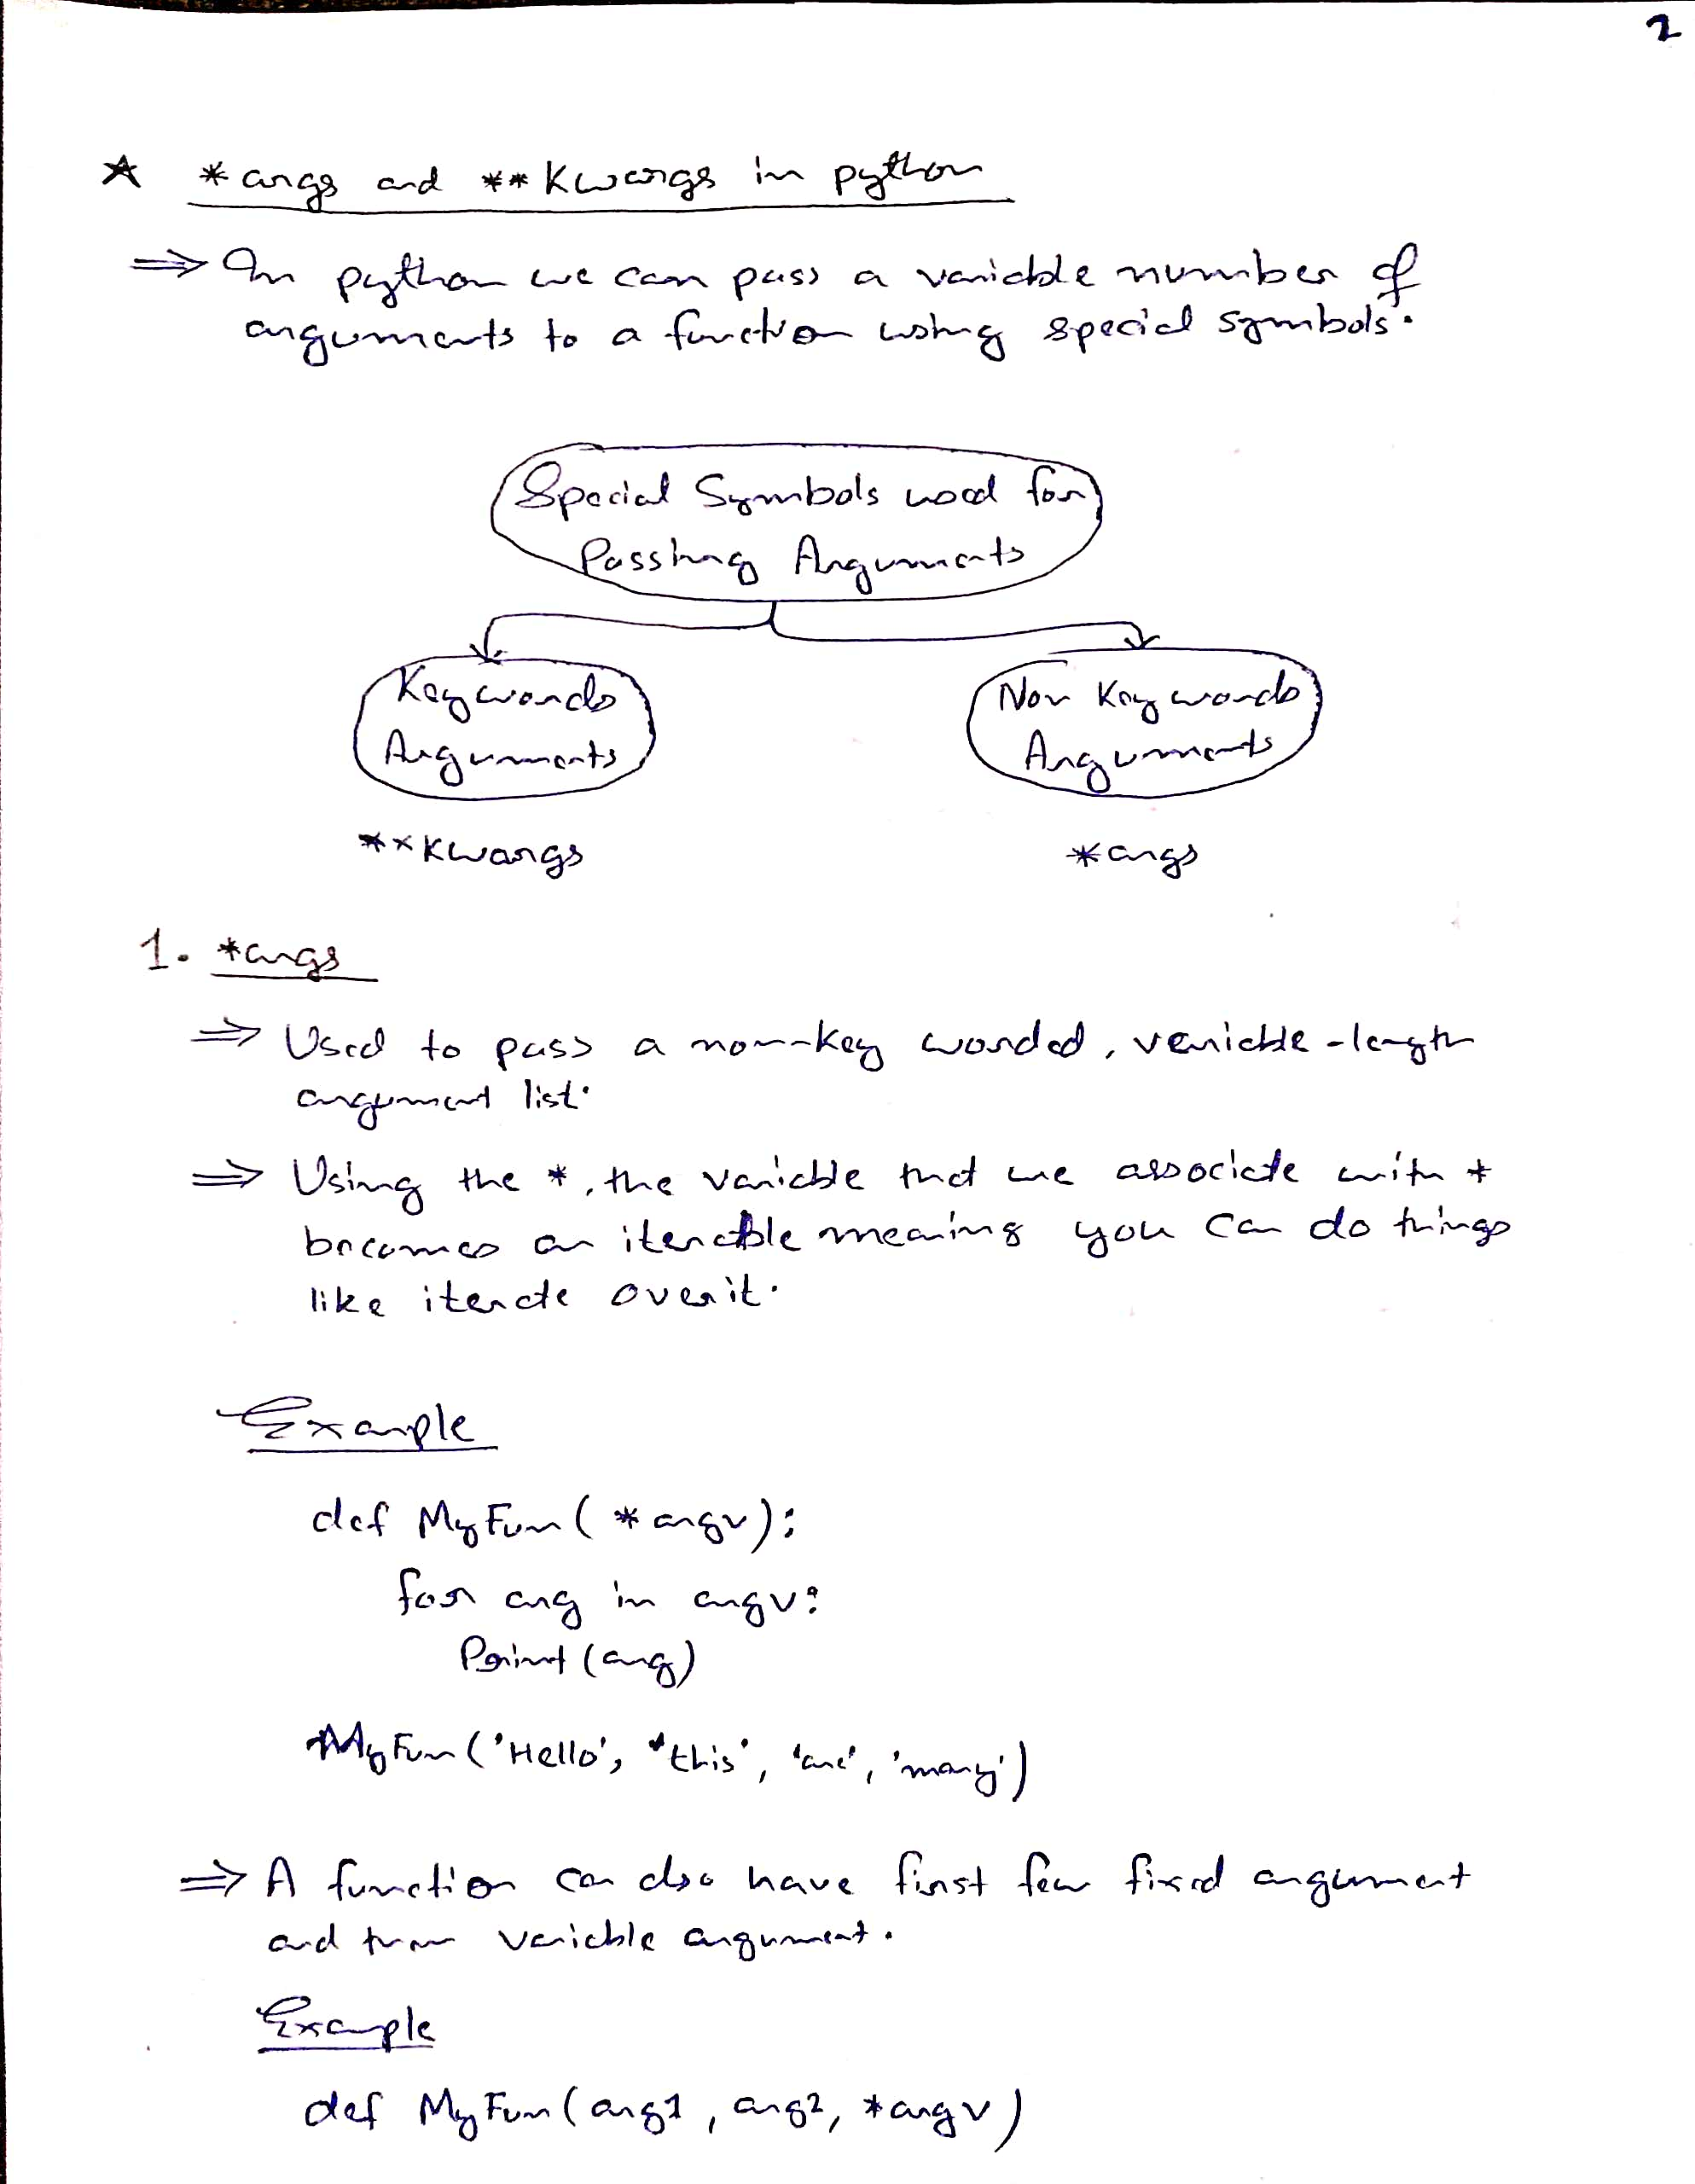 2
☆ *args and **Kwargs in python
⇒ In python we can pass a variable number of
arguments to a function using special symbols.
Special Symbols used for
Passing Arguments
Keywords
Arguments
Non Keywords
Arguments
**Kwargs
*args
1. *args
⇒ Used to pass a non-key worded, variable-length
argument list.
⇒ Using the *, the variable that we associate with *
becomes an iterable meaning you can do things
like iterate over it.
Example
def MyFun(*argv):
for arg in argv:
Print(arg)
MyFun('Hello', 'this', 'are', 'many')
⇒ A function can also have first few fixed argument
and then variable argument.
Example
def MyFun(arg1, arg2, *argv)